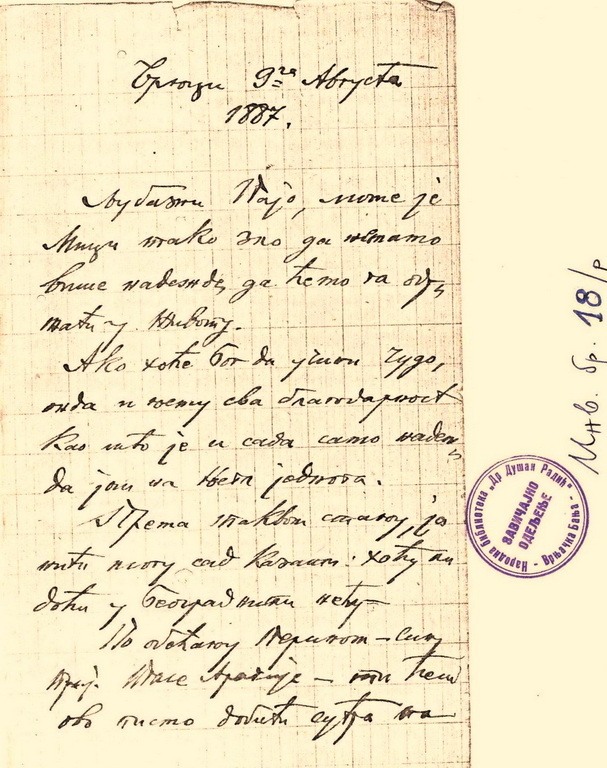 9га Августа
1887.
Љубазни Пајо, моме је
Мици тако зло да немамо
више надежде, да ћемо га одр-
жати у животу.
Ако хоће Бог да учини чудо,
онда и њему сва благодарност
као што је и сада само надеж-
да још на Њега једнога.
Према таквом стању, ја
нити могу сад казати хоћу ли
доћи у Београд или нећу
По обећању Перином – сину
– ти ћеш
ово писмо добити сутра на
Инв. бр. 18/Р
Народна библиотека „Др Душан Радић“ - Врњачка Бања -
ЗАВИЧАЈНО
ОДЕЉЕЊЕ